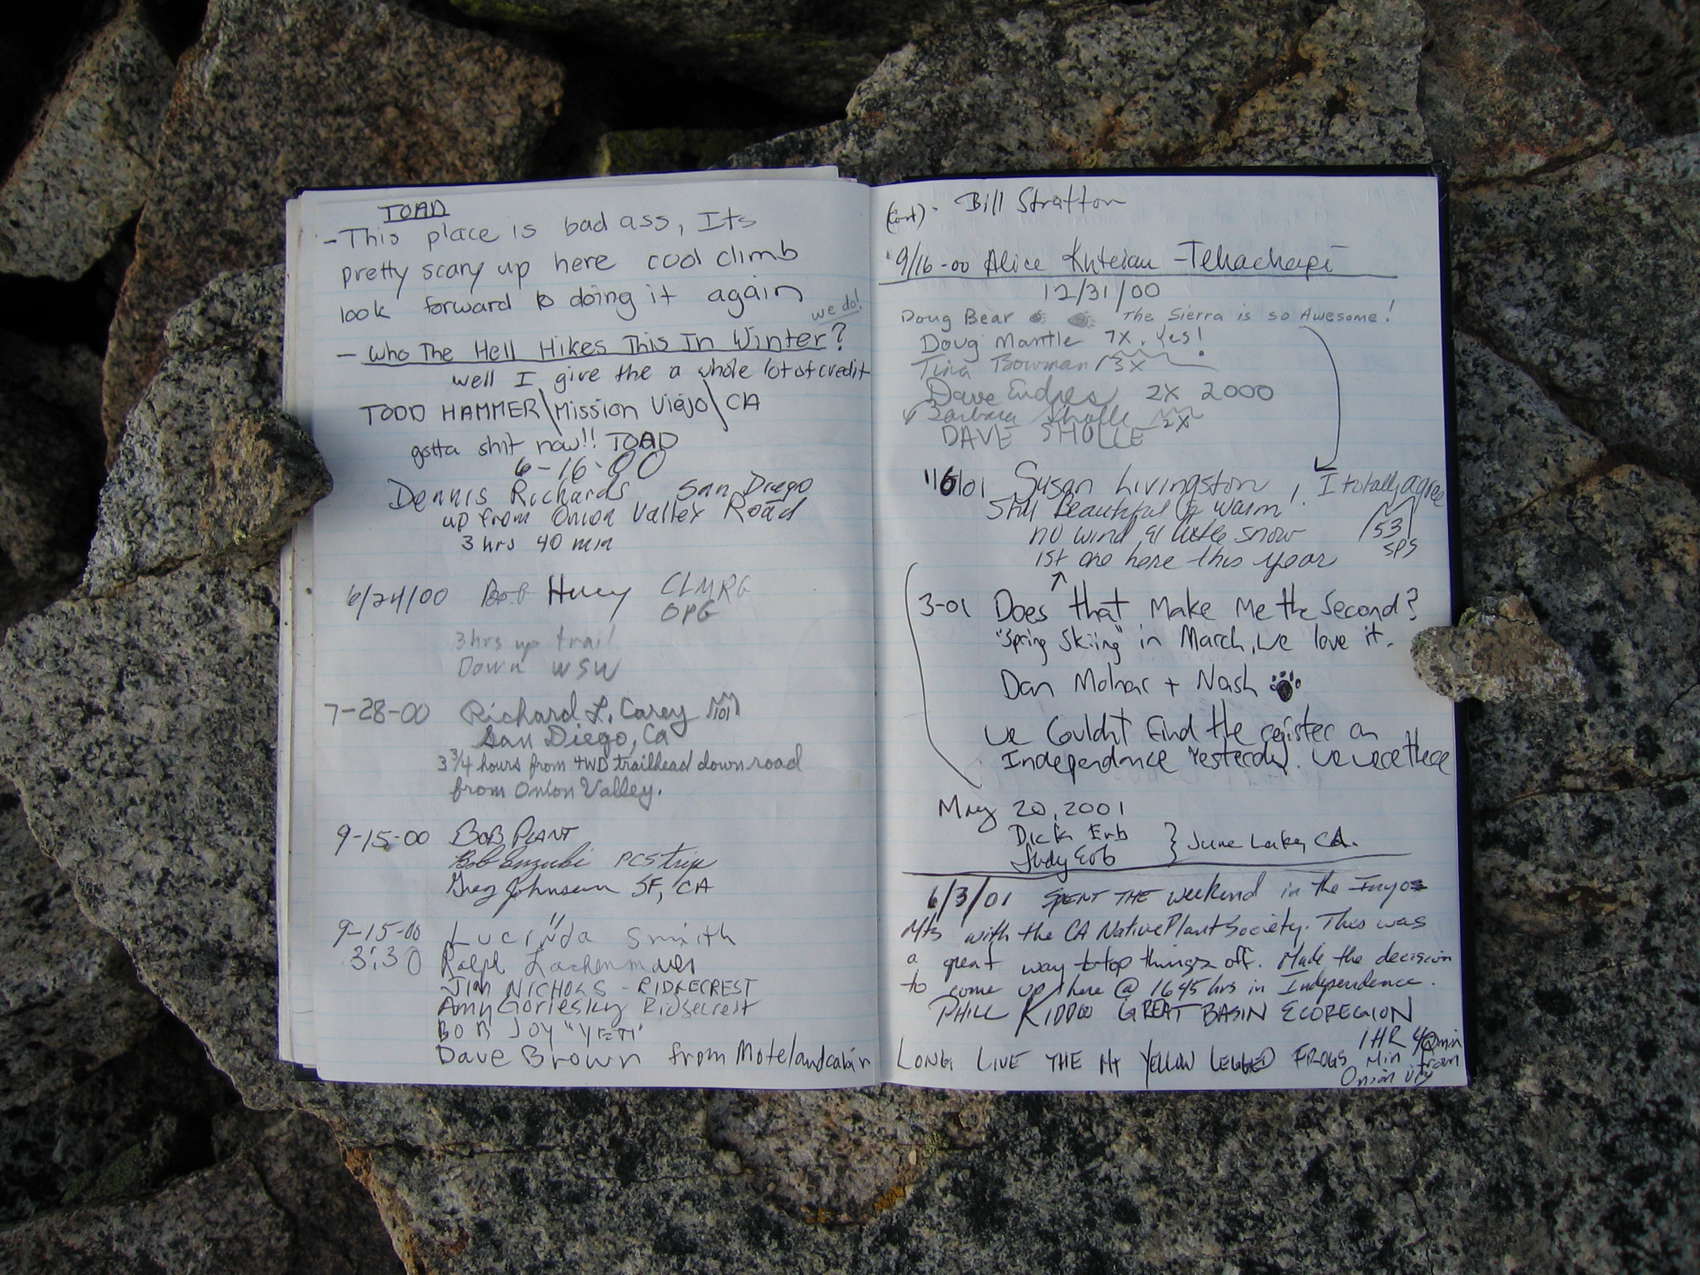 TOAD
- This place is bad ass, Its
pretty scary up here cool climb
look forward to doing it again
we do!
- Who The Hell Hikes This In Winter?
well I give the a whole lot of credit
TODD HAMMER \ Mission Viejo \ CA
gotta shit now!! TOAD
6-16-00
Dennis Richards San Diego
up from Onion Valley Road
3 hrs 40 min
6/24/00 Bob Huey CLMRG
OPG
3 hrs up trail
Down WSW
7-28-00 Richard L. Carey 101
San Diego, Ca
3 3/4 hours from 4WD trailhead down road
from Onion Valley.
9-15-00 BOB PLANT
Bob PCS trip
Greg Johnson SF, CA
9-15-00 Lucinda Smith
3:30 Ralph
JIM NICHOLS - RIDGECREST
Amy Ridgecrest
BOB JOY "YETI"
Dave Brown from Motel and cabin
(cont) - Bill Stratton
9/16-00 Alice - Tehachapi
12/31/00
Doug Bear The Sierra is so Awesome!
Doug Mantle 7X, Yes!
Tina Bowman 3X
Dave Endres 2X 2000
Barbara Sholle 2X
DAVE SHOLLE
1/6/01 Susan Livingston ! I totally agree
Still beautiful & warm
no wind & little snow 53
SPS
1st one here this year
3-01 Does that Make Me the Second?
"Spring Skiing" in March, we love it.
Dan Molnar + Nash
We Couldn't Find the register on
Independence Yesterday. We were there
May 20, 2001
Dick Erb
Judy Erb } June Lake, CA.
6/3/01 SPENT THE weekend in the Inyo
Mts with the CA Native Plant Society. This was
a great way to top things off. Made the decision
to come up here @ 1645 hrs in Independence.
PHILL KIDDOO GREAT BASIN ECOREGION
LONG LIVE THE Mt YELLOW LEGGED FROGS
1 HR 40 min
from
Onion Vly